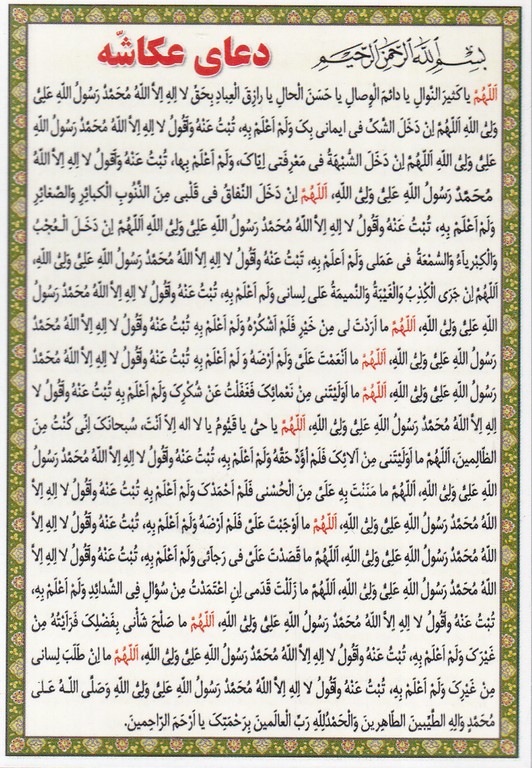 بِسْمِ اللّٰهِ الرَّحْمٰنِ الرَّحِیمِ
دعای عکاشّه
اَللّهُمَّ یا کَثیرَ النَّوالِ یا دائِمَ الْوِصالِ یا حَسَنَ الْحالِ یا رازِقَ الْعِبادِ بِحَقِّ لا اِلهَ اِلاَّ اللّهُ مُحَمَّدٌ رَسُولُ اللّهِ عَلِیٌّ
وَلِیُّ اللّهِ اَللّهُمَّ اِنْ دَخَلَ الشَّکُّ فی ایمانی بِکَ وَلَمْ اَعْلَمْ بِهِ، تُبْتُ عَنْهُ وَاَقُولُ لا اِلهَ اِلاَّ اللّهُ مُحَمَّدٌ رَسُولُ اللّهِ
عَلِیٌّ وَلِیُّ اللّهِ اَللّهُمَّ اِنْ دَخَلَ الشُّبْهَةُ فی مَعْرِفَتی اِیّاکَ، وَلَمْ اَعْلَمْ بِها، تُبْتُ عَنْهُ وَاَقُولُ لا اِلهَ اِلاَّ اللّهُ
مُحَمَّدٌ رَسُولُ اللّهِ عَلِیٌّ وَلِیُّ اللّهِ، اَللّهُمَّ اِنْ دَخَلَ النِّفاقُ فی قَلْبی مِنَ الذُّنُوبِ الْکَبائِرِ وَالصَّغائِرِ
وَلَمْ اَعْلَمْ بِهِ، تُبْتُ عَنْهُ وَاَقُولُ لا اِلهَ اِلاَّ اللّهُ مُحَمَّدٌ رَسُولُ اللّهِ عَلِیٌّ وَلِیُّ اللّهِ اَللّهُمَّ اِنْ دَخَلَ الْعُجْبُ
وَالْکِبْرِیآءُ وَالسُّمْعَةُ فی عَمَلی وَلَمْ اَعلَم بِهِ، تُبْتُ عَنْهُ وَاَقُولُ لا اِلهَ اِلاَّ اللّهُ مُحَمَّدٌ رَسُولُ اللّهِ عَلِیٌّ وَلِیُّ اللّهِ،
اَللّهُمَّ اِنْ جَرَی الْکِذْبُ وَالْغَیْبَةُ وَالنَّمیمَةُ عَلی لِسانی وَلَم اَعْلَمْ بِهِ، تُبْتُ عَنْهُ وَاَقُولُ لا اِلهَ اِلاَّ اللّهُ مُحَمَّدٌ رَسُولُ
اللّهِ عَلِیٌّ وَلِیُّ اللّهِ، اَللّهُمَّ ما اَرَدْتَ لی مِنْ خَیْرٍ فَلَمْ اَشْکُرْهُ وَلَمْ اَعْلَمْ بِهِ تُبْتُ عَنْهُ وَاَقُولُ لا اِلهَ اِلاَّ اللّهُ مُحَمَّدٌ
رَسُولُ اللّهِ عَلِیٌّ وَلِیُّ اللّهِ، اَللّهُمَّ ما اَنْعَمْتَ عَلَیَّ وَلَمْ اَرْضَهُ وَ لَمْ اَعْلَمْ بِهِ، تُبْتُ عَنْهُ وَاَقُولُ لا اِلهَ اِلاَّ اللّهُ مُحَمَّدٌ
رَسُولُ اللّهِ عَلِیٌّ وَلِیُّ اللّهِ، اَللّهُمَّ ما اَوْلَیْتَنی مِنْ نَعْمائِکَ فَغَفَلْتُ عَنْ شُکْرِکَ وَلَمْ اَعْلَمْ بِهِ تُبْتُ عَنْهُ وَاَقُولُ لا
اِلهَ اِلاَّ اللّهُ مُحَمَّدٌ رَسُولُ اللّهِ عَلِیٌّ وَلِیُّ اللّهِ، اَللّهُمَّ یا حَیُّ یا قَیُّومُ یا لا اله اِلاّ اَنْتَ، سُبحانَکَ اِنّی کُنْتُ مِنَ
الظّالِمینَ، اَللّهُمَّ ما اَوْلَیْتَنی مِنْ آلائِکَ فَلَمْ اُؤَدِّ حَقَّهُ وَلَمْ اَعْلَمْ بِهِ، تُبْتُ عَنْهُ وَاَقُولُ لا اِلهَ اِلاَّ اللّهُ مُحَمَّدٌ رَسُولُ
اللّهِ عَلِیٌّ وَلِیُّ اللّهِ، اَللّهُمَّ ما مَنَنْتَ بِهِ عَلَیَّ مِنَ الْحُسْنی فَلَمْ اَحْمَدْکَ وَلَمْ اَعْلَمْ بِهِ تُبْتُ عَنْهُ وَاَقُولُ لا اِلهَ اِلاَّ
اللّهُ مُحَمَّدٌ رَسُولُ اللّهِ عَلِیٌّ وَلِیُّ اللّهِ، اَللّهُمَّ ما اَوْجَبْتَ عَلَیَّ فَلَمْ اَرْضَهُ وَلَمْ اَعْلَمْ بِهِ، تُبْتُ عَنْهُ وَاَقُولُ لا اِلهَ اِلاَّ
اللّهُ مُحَمَّدٌ رَسُولُ اللّهِ عَلِیٌّ وَلِیُّ اللّهِ، اَللّهُمَّ ما قَصَدْتَ عَلَیَّ فی رَجآئی وَلَمْ اَعْلَمْ بِهِ، تُبْتُ عَنْهُ وَاَقُولُ لا اِلهَ اِلاَّ
اللّهُ مُحَمَّدٌ رَسُولُ اللّهِ عَلِیٌّ وَلِیُّ اللّهِ، اَللّهُمَّ ما زَلَلْتَ قَدَمی اِنِ اعْتَمَدْتُ مِنْ سُؤالٍ فِی الشَّدائِدِ وَلَمْ اَعْلَمْ بِهِ،
تُبْتُ عَنْهُ وَاَقُولُ لا اِلهَ اِلاَّ اللّهُ مُحَمَّدٌ رَسُولُ اللّهِ عَلِیٌّ وَلِیُّ اللّهِ، اَللّهُمَّ ما صَلَحَ شَأْنی بِفَضْلِکَ فَرَاَیْتُهُ مِنْ
غَیْرِکَ وَلَمْ اَعْلَمْ بِهِ، تُبْتُ عَنْهُ وَاَقُولُ لا اِلهَ اِلاَّ اللّهُ مُحَمَّدٌ رَسُولُ اللّهِ عَلِیٌّ وَلِیُّ اللّهِ، اَللّهُمَّ ما اِنْ طَلَبَ لِسانی
مِنْ غَیْرِکَ وَلَمْ اَعْلَمْ بِهِ، تُبْتُ عَنْهُ وَاَقُولُ لا اِلهَ اِلاَّ اللّهُ مُحَمَّدٌ رَسُولُ اللّهِ عَلِیٌّ وَلِیُّ اللّهِ وَصَلَّی اللّهُ عَلی
مُحَمَّدٍ وَالِهِ الطَّیِّبینَ الطّاهِرینَ وَالْحَمْدُلِلّهِ رَبِّ الْعالَمینَ بِرَحْمَتِکَ یا اَرْحَمَ الرّاحِمینَ.